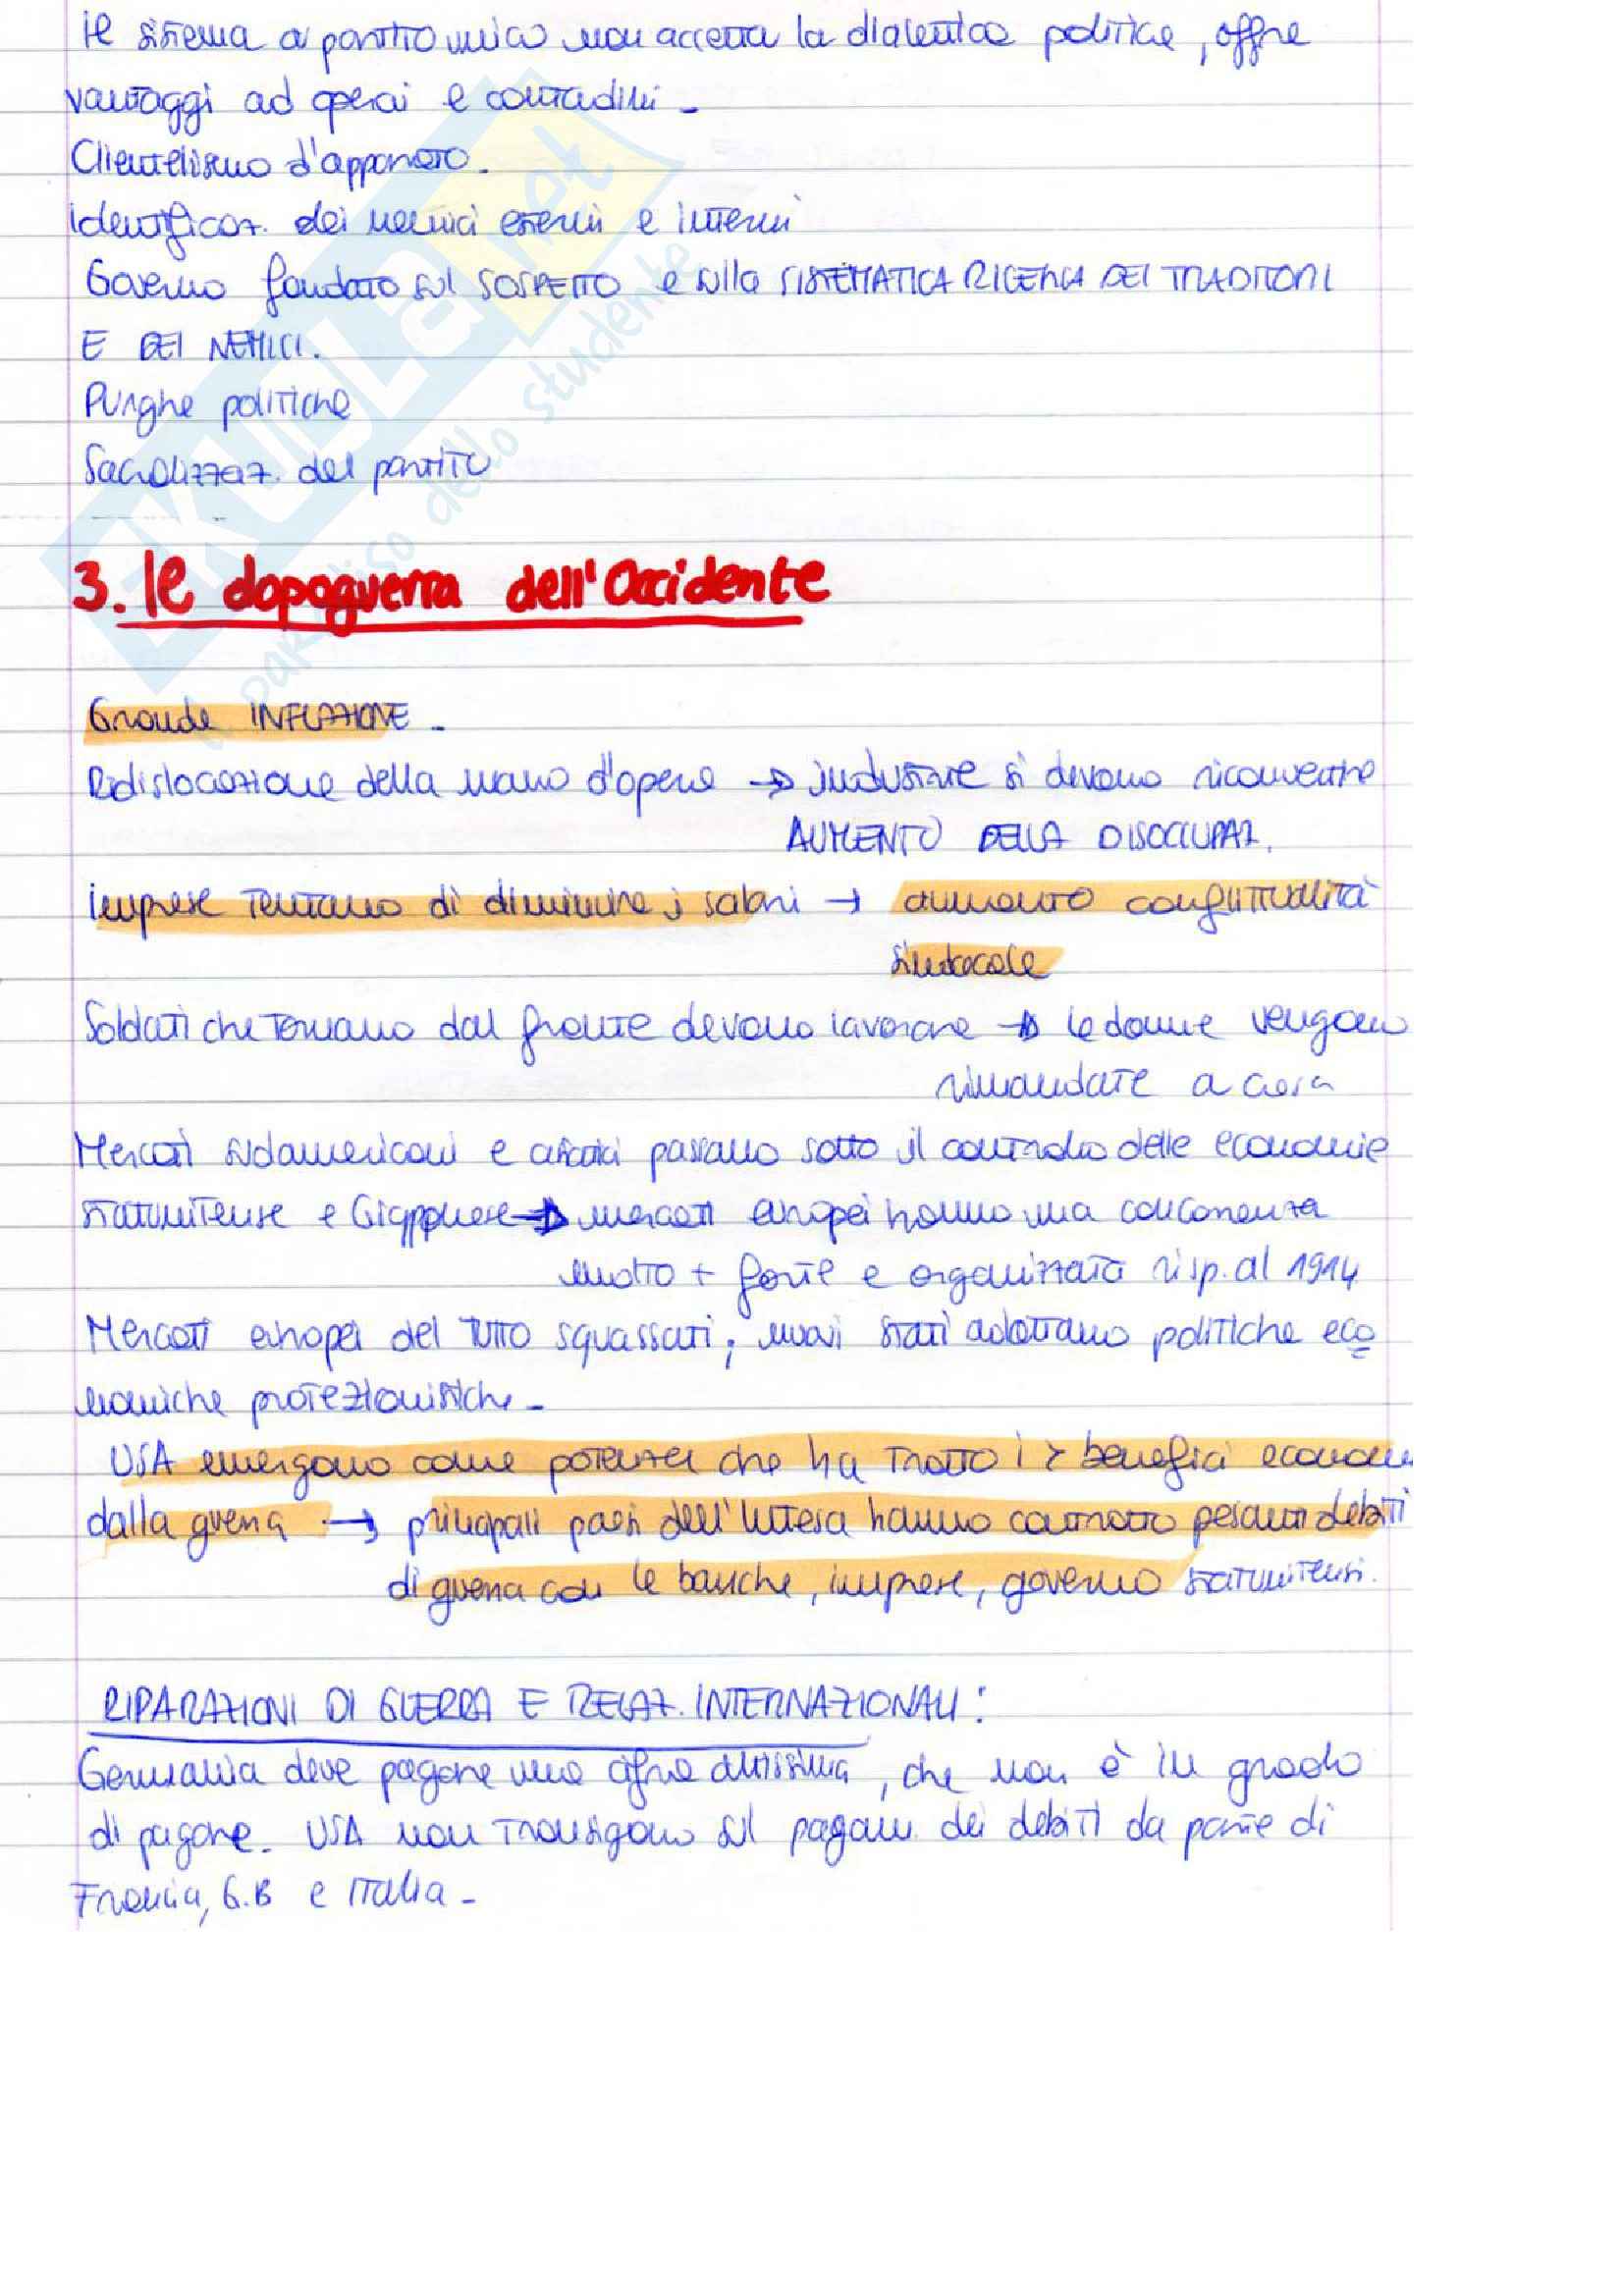 il sistema a partito unico non accetta la dialettica politica, offre
vantaggi ad operai e contadini -
Clientelismo d'apparato.
Identificaz. dei nemici esterni e interni
Governo fondato sul SOSPETTO e sulla SISTEMATICA RICERCA DEI TRADITORI
E DEI NEMICI.
Purghe politiche
Sacralizzaz. del partito
3. le dopoguerra dell'Occidente
Grande INFLAZIONE -
Ridislocazione della mano d'opera → industrie si devono riconvertire
AUMENTO DELLA DISOCCUPAZ.
imprese tentano di diminuire i salari → aumento conflittualità
sindacale
Soldati che tornano dal fronte devono lavorare → le donne vengono
rimandate a casa
Mercati sudamericani e asiatici passano sotto il controllo delle economie
statunitense e Giapponese → mercati europei hanno una concorrenza
molto + forte e organizzata risp. al 1914
Mercati europei del tutto squassati; nuovi stati adottano politiche eco
nomiche protezionistiche -
USA emergono come potenza che ha tratto i > benefici econom
dalla guerra → principali paesi dell'Intesa hanno contratto pesanti debiti
di guerra con le banche, imprese, governo statunitensi.
RIPARAZIONI DI GUERRA E RELAZ. INTERNAZIONALI:
Germania deve pagare una cifra altissima, che non è in grado
di pagare. USA non transigono sul pagam. dei debiti da parte di
Francia, G.B e Italia -
SKUOLA.net
il paradiso dello studente